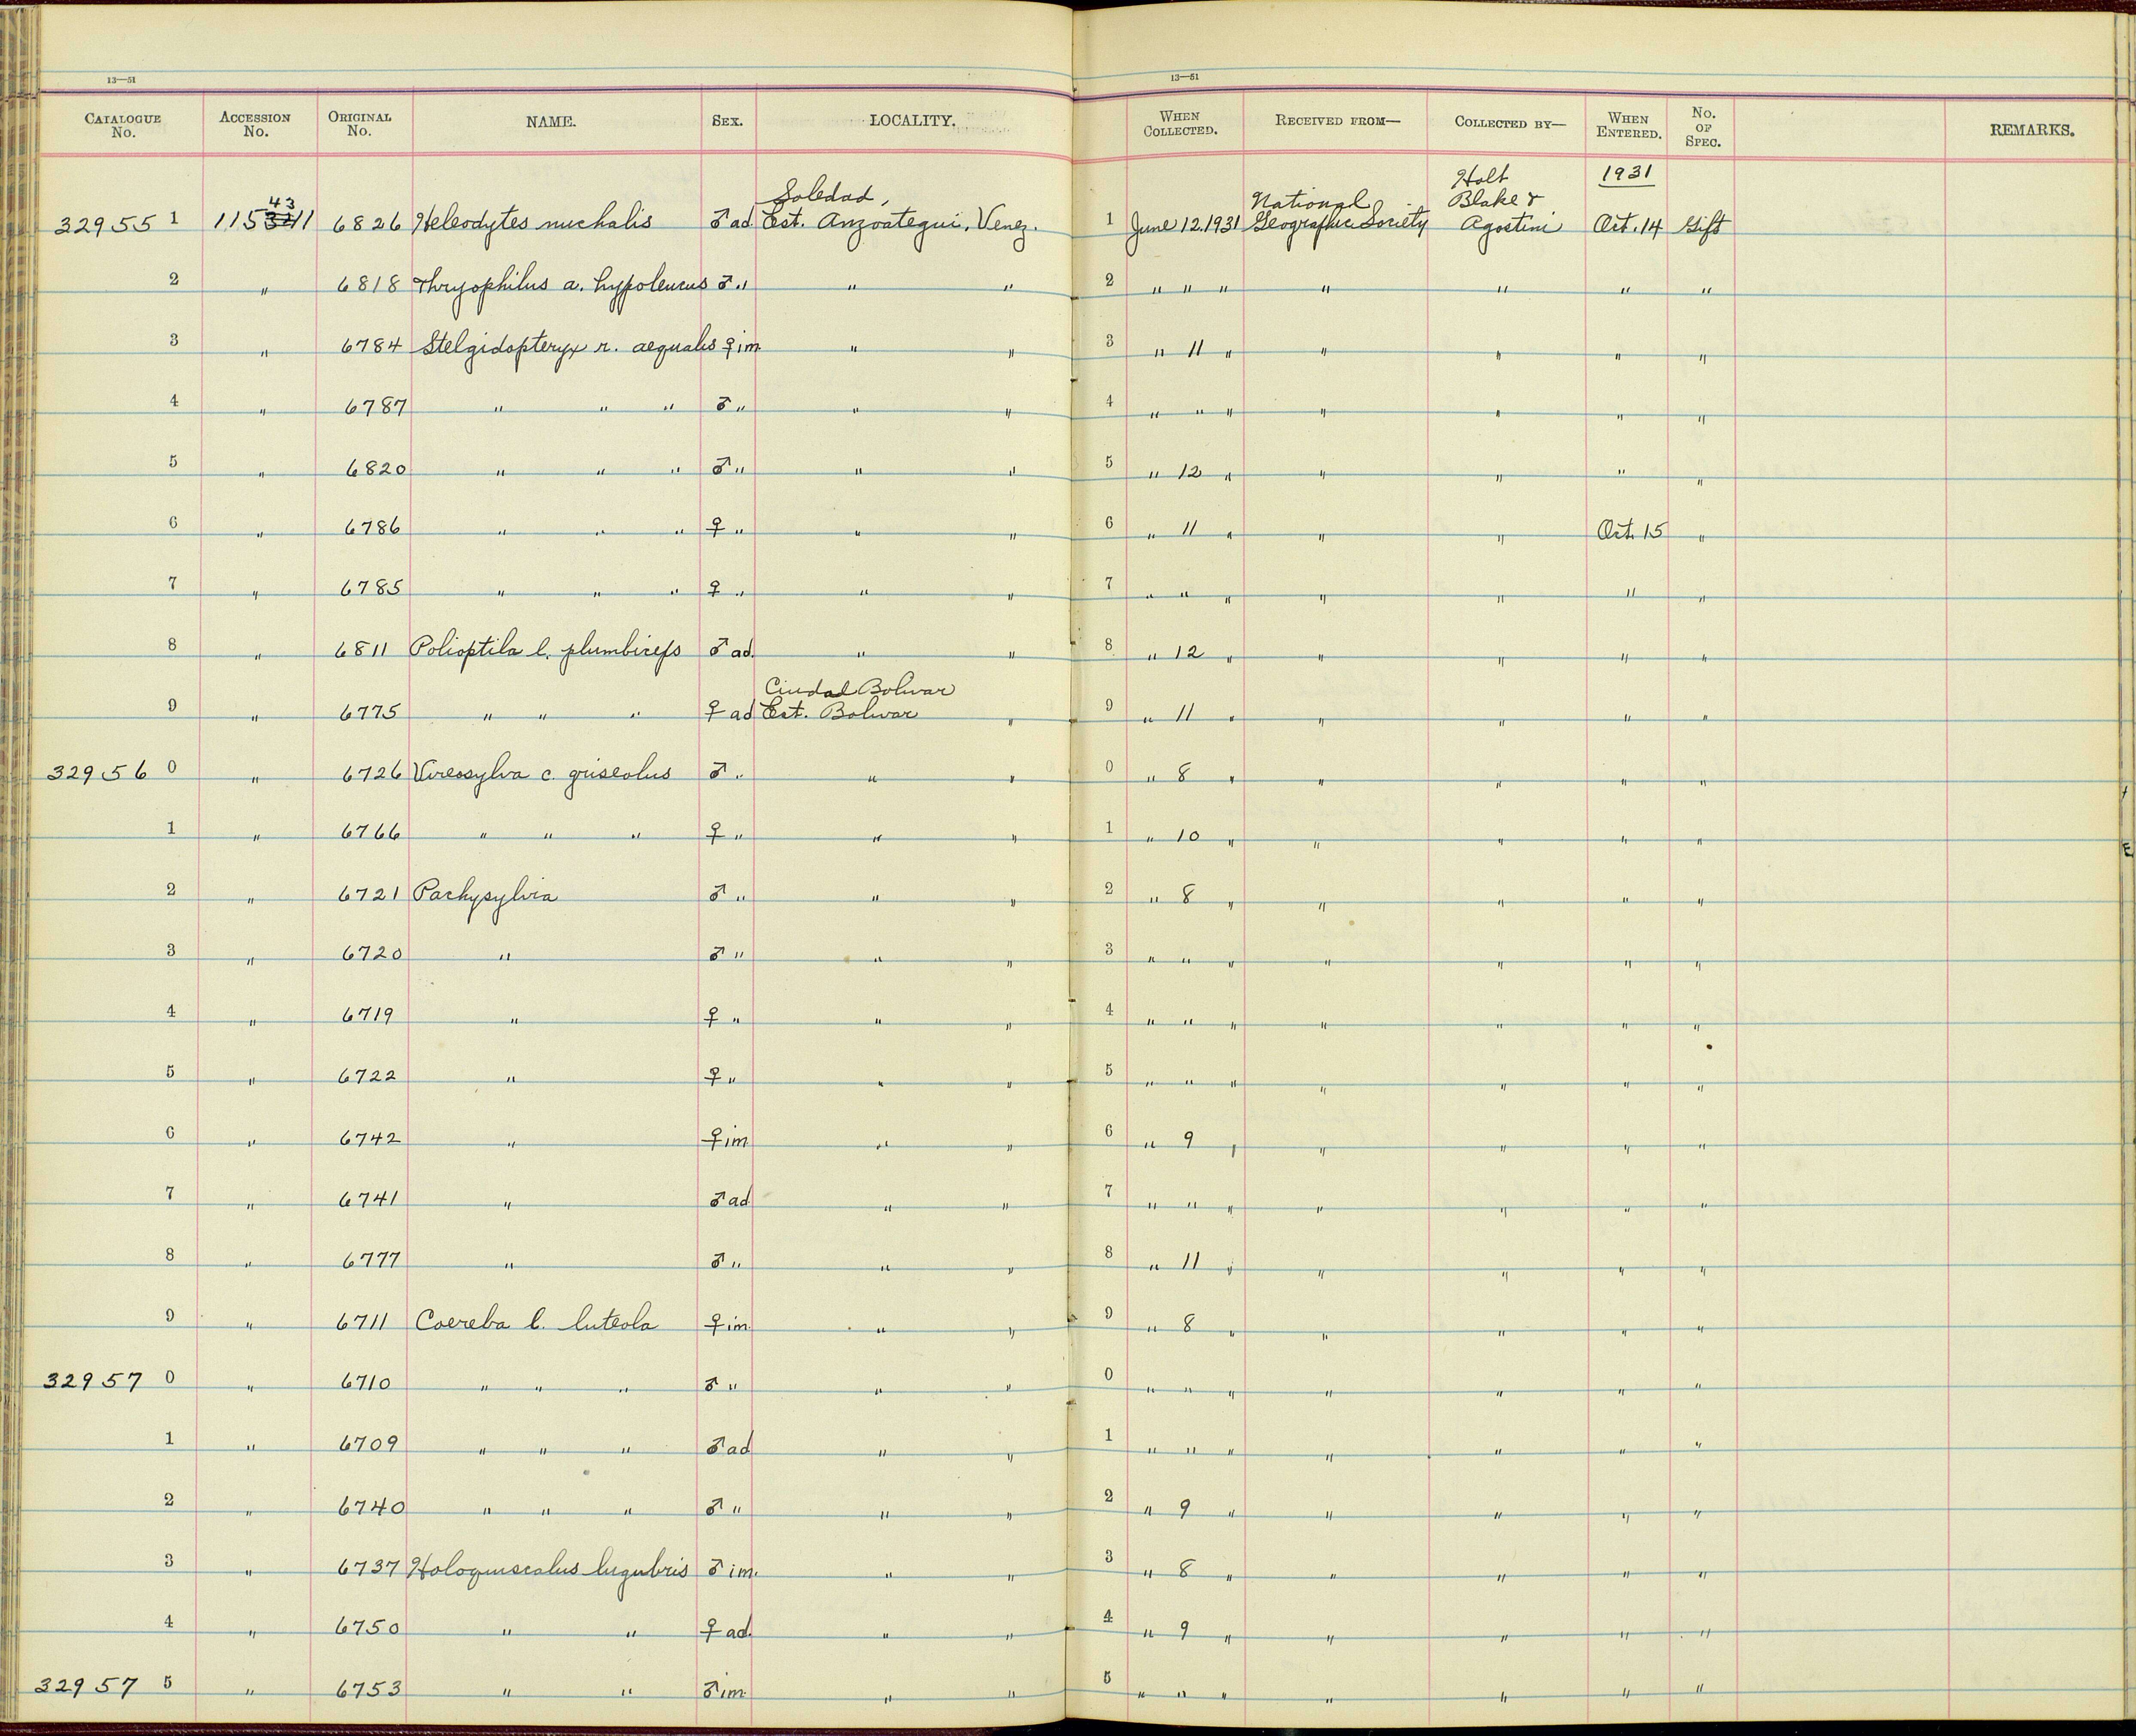 13—51 13—51
CATALOGUE No. ACCESSION No. ORIGINAL No. NAME. SEX. LOCALITY. WHEN COLLECTED. RECEIVED FROM— COLLECTED BY— WHEN ENTERED. No. OF SPEC. REMARKS.
43 Soledad, National Holt Blake & 1931
32955 1 1153211 6826 Heleodytes nuchalis ♂ ad. Est. Anzoategui, Venez. 1 June 12.1931 Geographic Society Agostini Oct. 14 Gift
2 " 6818 Thryophilus a. hypoleucus ♂ " " " 2 " " " " " " "
3 " 6784 Stelgidopteryx r. aequalis ♀ im " " 3 " 11 " " " " "
4 " 6787 " " " ♂ " " " 4 " " " " " " "
5 " 6820 " " " ♂ " " " 5 " 12 " " " " "
6 " 6786 " " " ♀ " " " 6 " 11 " " " Oct. 15 "
7 " 6785 " " " ♀ " " " 7 " " " " " " "
8 " 6811 Polioptila l. plumbiceps ♂ ad. " " 8 " 12 " " " " "
Ciudad Bolivar
9 " 6775 " " " ♀ ad Est. Bolivar " 9 " 11 " " " " "
32956 0 " 6726 Vireosylva c. griseolus ♂ " " " 0 " 8 " " " " "
1 " 6766 " " " ♀ " " " 1 " 10 " " " " "
2 " 6721 Pachysylvia ♂ " " " 2 " 8 " " " " "
3 " 6720 " ♂ " " " 3 " " " " " " "
4 " 6719 " ♀ " " " 4 " " " " " " "
5 " 6722 " ♀ " " " 5 " " " " " " "
6 " 6742 " ♀ im. " " 6 " 9 " " " " "
7 " 6741 " ♂ ad. " " 7 " " " " " " "
8 " 6777 " ♂ " " " 8 " 11 " " " " "
9 " 6711 Coereba l. luteola ♀ im. " " 9 " 8 " " " " "
32957 0 " 6710 " " " ♂ " " " 0 " " " " " " "
1 " 6709 " " " ♂ ad " " 1 " " " " " " "
2 " 6740 " " " ♂ " " " 2 " 9 " " " " "
3 " 6737 Holoquiscalus lugubris ♂ im. " " 3 " 8 " " " " "
4 " 6750 " " ♀ ad. " " 4 " 9 " " " " "
32957 5 " 6753 " " ♂ im. " " 5 " " " " " " "